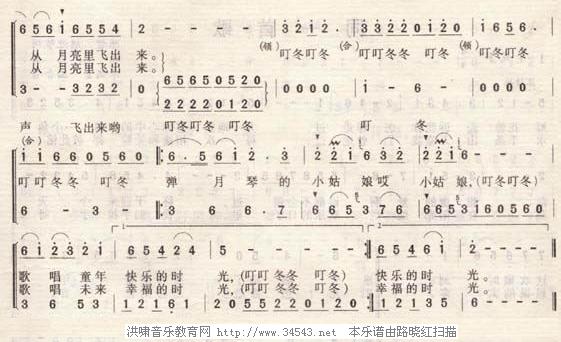 6 5 6 i 6 5 5 4 | 2 - - - | - - - - | 3 2 i 2 · | 3 3 2 2 0 1 2 0 | 1 6 5 6 ·
(领) (合) (领)
从 月亮里飞出 来。 叮冬冬 叮叮冬冬 叮冬 叮冬冬
从 月亮里飞出 来。
3 - - 3 2 3 2 | 0 6 5 6 5 0 5 2 0 | 0 0 0 0 | i - 6 - | 0 0 0 0
2 2 2 2 0 1 2 0
声 飞出来哟 叮冬叮冬 叮冬 叮 冬
(合)
i i 6 6 0 5 6 0 | 6 · 5 6 i 2 · 3 | 2 2 i 6 3 2 | 2 2 i 6 -
叮叮冬冬 叮冬 弹 月琴的 小姑娘哎 小姑娘,(叮冬叮冬)
6 - 3 - | 3 6 6 · 7 | 6 6 5 3 7 6 | 6 6 5 3 1 6 0 5 6 0
1 2
6 i 2 3 2 i | 6 5 4 2 4 | 5 - - - | - - - - | 6 5 4 6 i | 2 - - -
歌 唱 童年 快乐的时 光,(叮叮冬冬 叮冬) 快乐的时 光。
歌 唱 未来 幸福的时 光,(叮叮冬冬 叮冬) 幸福的时 光。
3 6 5 3 | 1 2 1 6 1 | 2 0 5 5 2 2 0 1 2 0 | 2 2 2 2 0 1 2 0 | 1 2 1 3 5 | 6 - - -
洪啸音乐教育网 http://www.34543.net 本乐谱由路晓红扫描